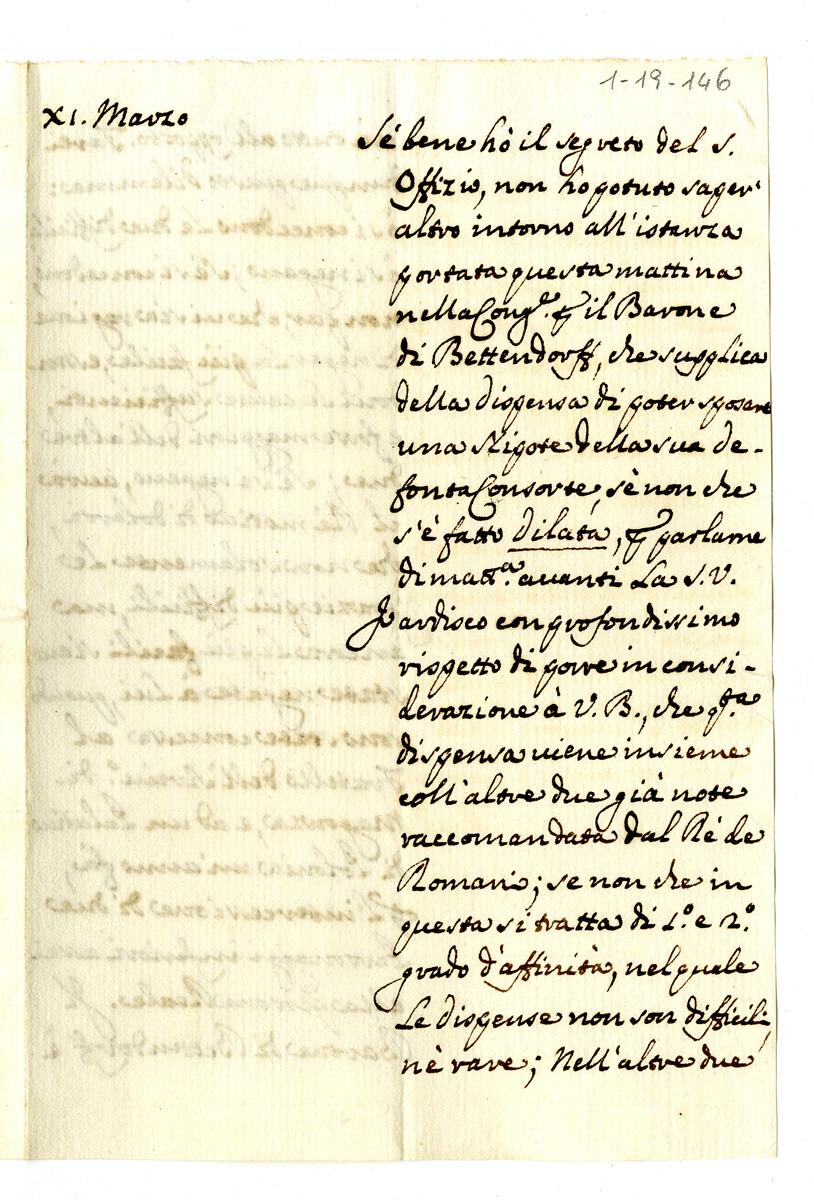 1-19-146
XI. Marzo
Sé bene hò il segreto del S.
Offizio, non ho potuto saper'
altro intorno all'istanza
portata questa mattina
nella Cong.e p il Barone
di Bettendorff, che supplica
della dispensa di poter sposare
una Nipote della sua de-
fonta Consorte, sè non che
s'è fatto dilata, p parlarne
di matt.a avanti La S.V.
Jo ardisco con profondissimo
rispetto di porre in consi-
derazione à V. B., che q.ta
dispensa viene insieme
coll'altre due già note
raccomandata dal Rè de
Romani; se non che in
questa si tratta di 1.o e 2.o
grado d'affinità, nel quale
Le dispense non son difficili,
nè rare; Nell'altre due